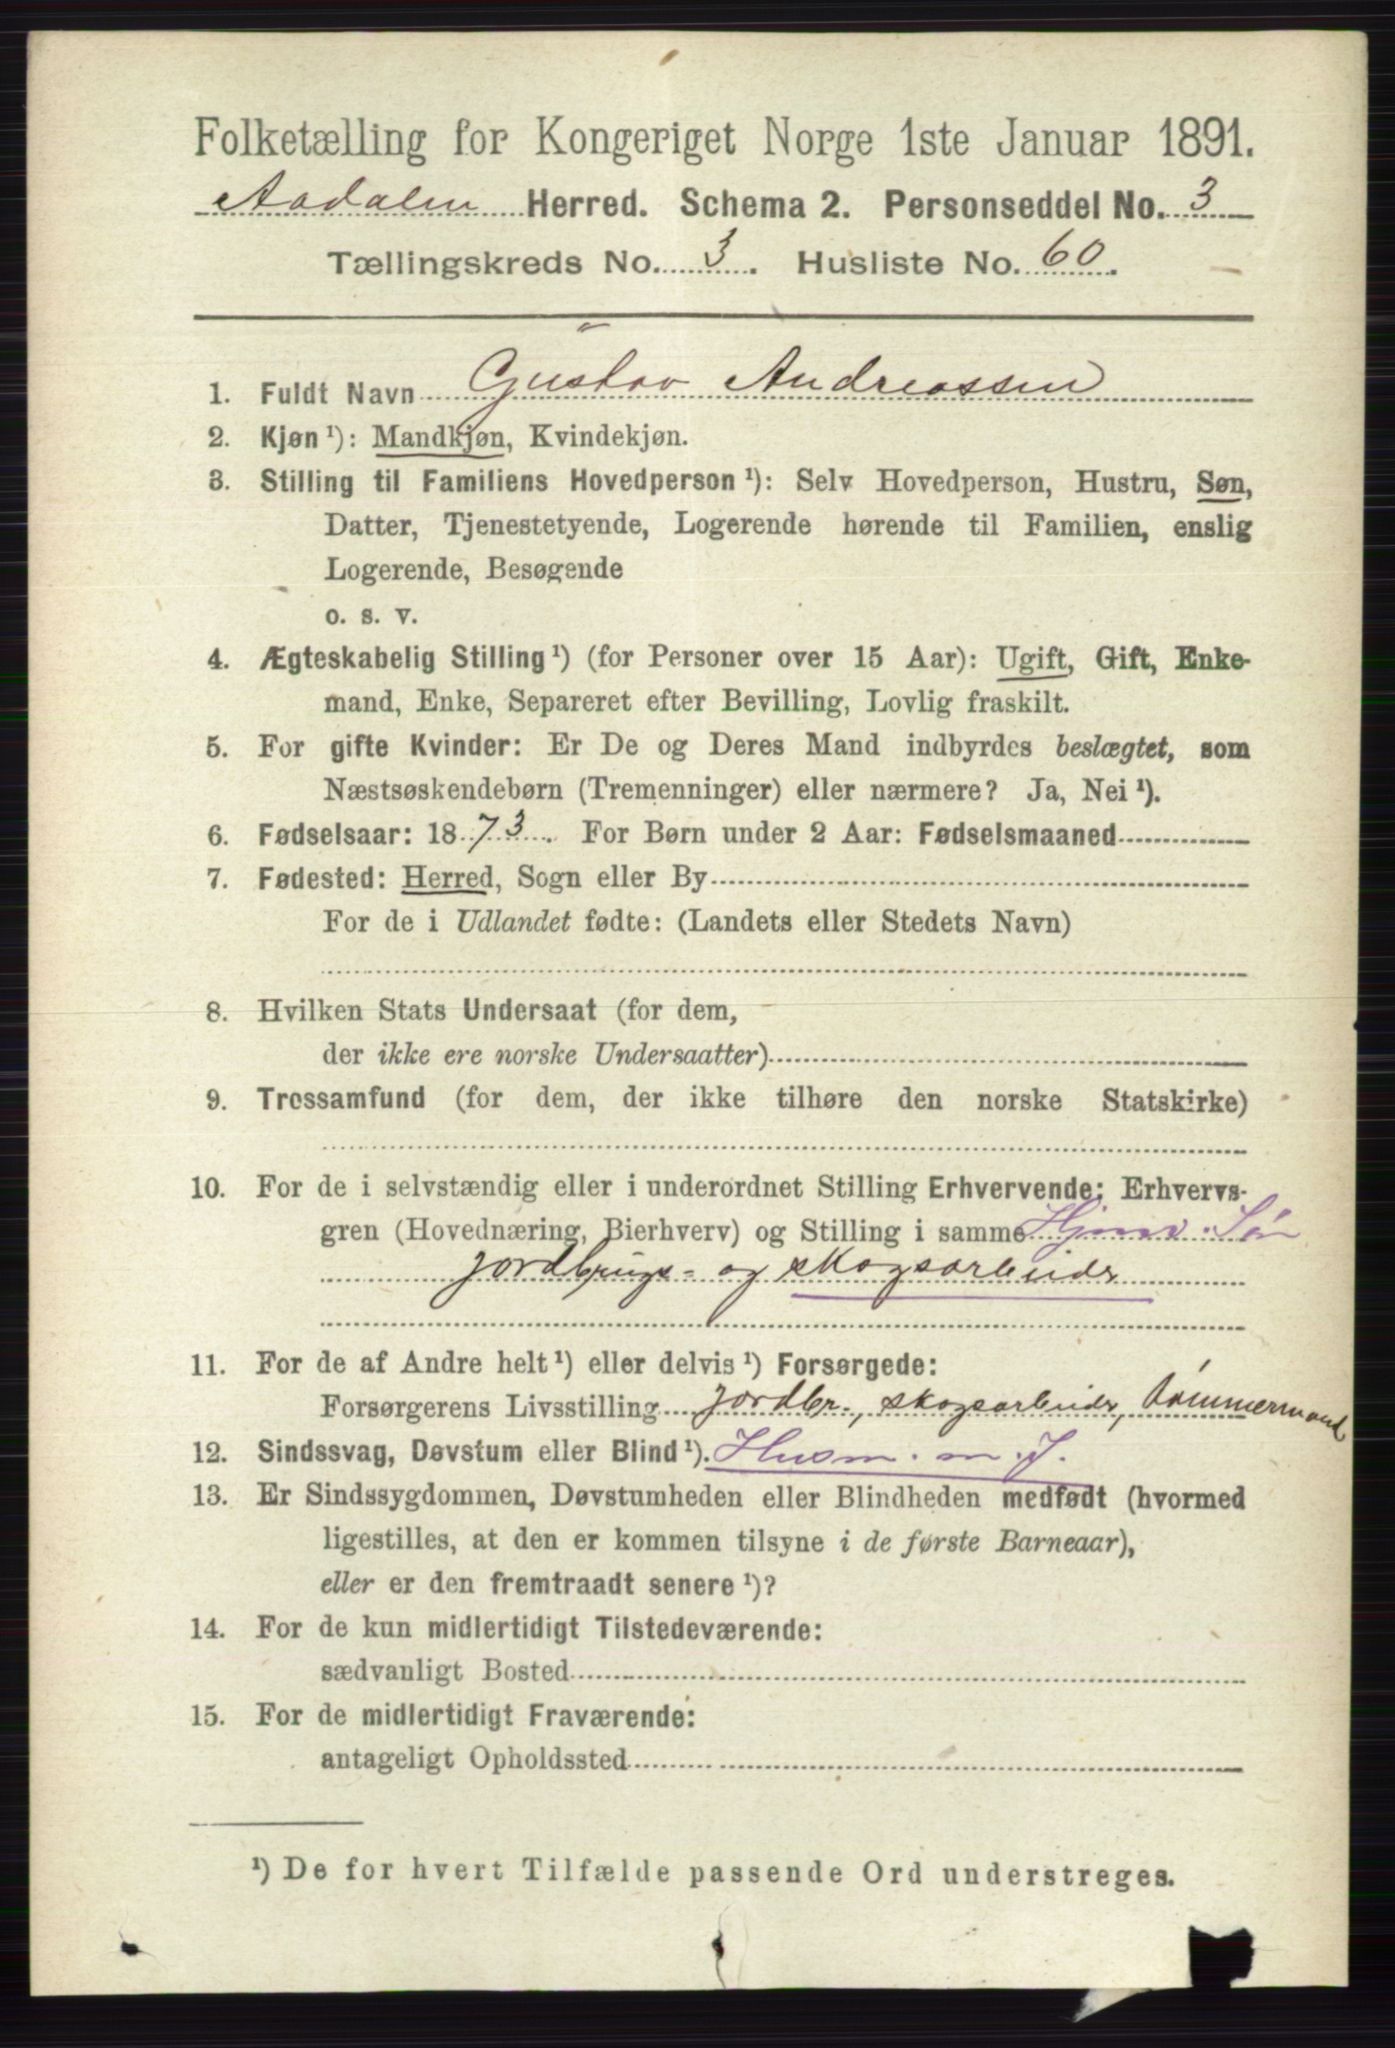 Folketælling for Kongeriget Norge 1ste Januar 1891.
Aadalen Herred. Schema 2. Personseddel No. 3
Tællingskreds No. 3. Husliste No. 60.
1. Fuldt Navn Gustav Andreassen
2. Kjøn ¹): Mandkjøn, Kvindekjøn.
3. Stilling til Familiens Hovedperson ¹): Selv Hovedperson, Hustru, Søn,
Datter, Tjenestetyende, Logerende hørende til Familien, enslig
Logerende, Besøgende
o. s. v.
4. Ægteskabelig Stilling ¹) (for Personer over 15 Aar): Ugift, Gift, Enke-
mand, Enke, Separeret efter Bevilling, Lovlig fraskilt.
5. For gifte Kvinder: Er De og Deres Mand indbyrdes beslægtet, som
Næstsøskendebørn (Tremenninger) eller nærmere? Ja, Nei ¹).
6. Fødselsaar: 1873. For Børn under 2 Aar: Fødselsmaaned
7. Fødested: Herred, Sogn eller By
For de i Udlandet fødte: (Landets eller Stedets Navn)
8. Hvilken Stats Undersaat (for dem,
der ikke ere norske Undersaatter)
9. Trossamfund (for dem, der ikke tilhøre den norske Statskirke)
10. For de i selvstændig eller i underordnet Stilling Erhvervende: Erhvervs-
gren (Hovednæring, Bierhverv) og Stilling i samme Hjmv. Søn
jordbrugs- og skogsarbeidr
11. For de af Andre helt ¹) eller delvis ¹) Forsørgede:
Forsørgerens Livsstilling jordbr., skogsarbeidr, tømmermand
12. Sindssvag, Døvstum eller Blind ¹). Husm. m. J.
13. Er Sindssygdommen, Døvstumheden eller Blindheden medfødt (hvormed
ligestilles, at den er kommen tilsyne i de første Barneaar),
eller er den fremtraadt senere ¹)?
14. For de kun midlertidigt Tilstedeværende:
sædvanligt Bosted
15. For de midlertidigt Fraværende:
antageligt Opholdssted
¹) De for hvert Tilfælde passende Ord understreges.